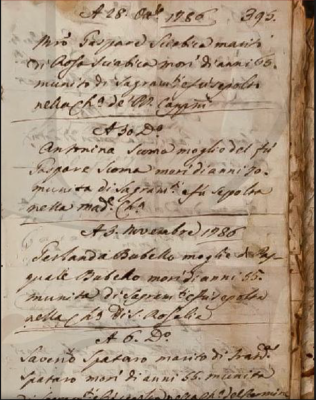 A 28 Ott.e 1786 395.
Mrõ Gaspare Sciabica marito
di Rosa Sciabica morì di anni 65.
munito di Sagramti e fu sepolto
nella Cha de PP. Cappni
A 30 Do
Antonina Scuma moglie del fù
Gaspare Scuma morì di anni 70.
munita di Sagramti e fù sepolta
nella mad. Cha
A 5. Novembre 1786
Gerlanda Bubello moglie di Pas
quale Bubello morì di anni 55.
munita di Sagramti e fu sepolta
nella Cha di S. Rosalia
A 6. Do
Saverio Spataro marito di
Spataro morì di anni 55. munito